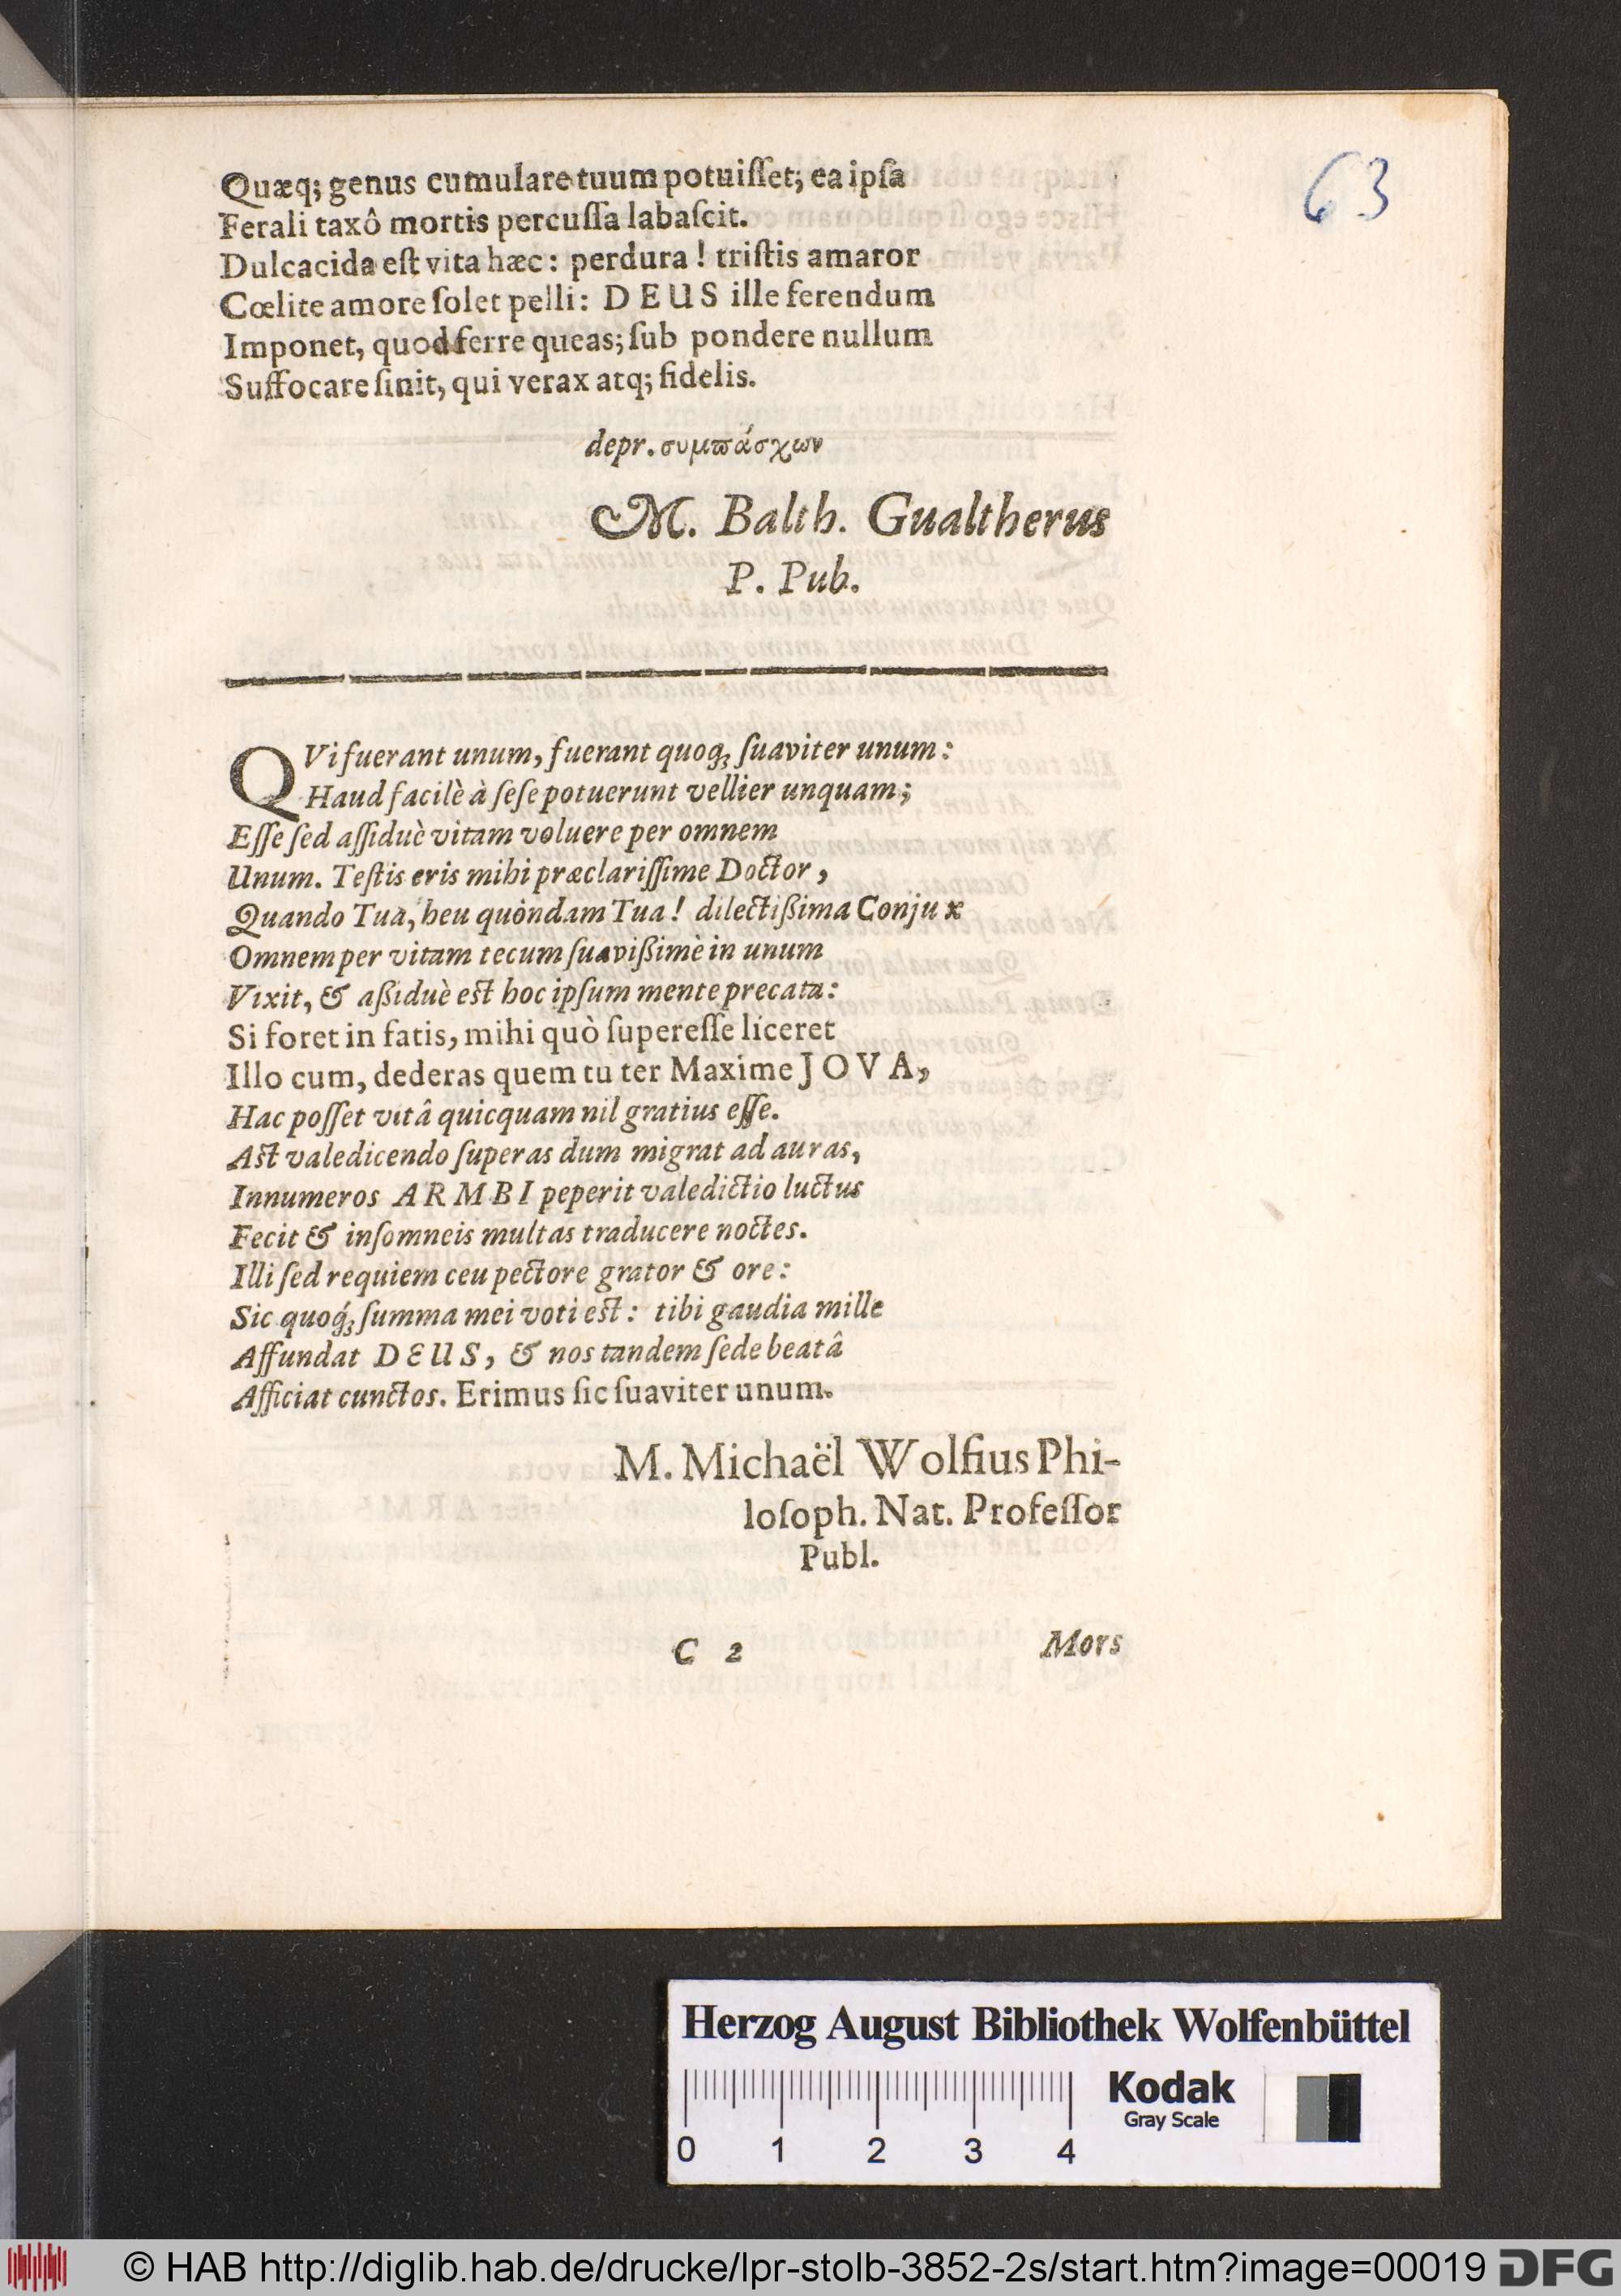 63
Quæq; genus cumulare tuum potuiſſet; ea ipſa
Ferali taxô mortis percuſſa labaſcit.
Dulcacida eſt vita hæc: perdura! triſtis amaror
Cœlite amore ſolet pelli: DEUS ille ferendum
Imponet, quod ferre queas; ſub pondere nullum
Suffocare ſinit, qui verax atq; fidelis.
depr. συμπάσχων
M. Balth. Gualtherus
P. Pub.
QVi fuerant unum, fuerant quoq; ſuaviter unum:
Haud facilè à ſeſe potuerunt vellier unquam;
Eſſe ſed aſſiduè vitam voluere per omnem
Unum. Teſtis eris mihi præclariſſime Doctor,
Quando Tua, heu quòndam Tua! dilectißima Conjux
Omnem per vitam tecum ſuavißimè in unum
Vixit, & aßiduè eſt hoc ipſum mente precata:
Si foret in fatis, mihi quò ſupereſſe liceret
Illo cum, dederas quem tu ter Maxime JOVA,
Hac poſſet vitâ quicquam nil gratius eſſe.
Aſt valedicendo ſuperas dum migrat ad auras,
Innumeros ARMBI peperit valedictio luctus
Fecit & inſomneis multas traducere noctes.
Illi ſed requiem ceu pectore grator & ore:
Sic quoq́; ſumma mei voti eſt: tibi gaudia mille
Affundat DEUS, & nos tandem ſede beatâ
Afficiat cunctos. Erimus ſic ſuaviter unum.
M. Michaël Wolfius Phi-
loſoph. Nat. Profeſſor
Publ.
C 2 Mors
Herzog August Bibliothek Wolfenbüttel
0 1 2 3 4
Kodak
Gray Scale
© HAB http://diglib.hab.de/drucke/lpr-stolb-3852-2s/start.htm?image=00019 DFG